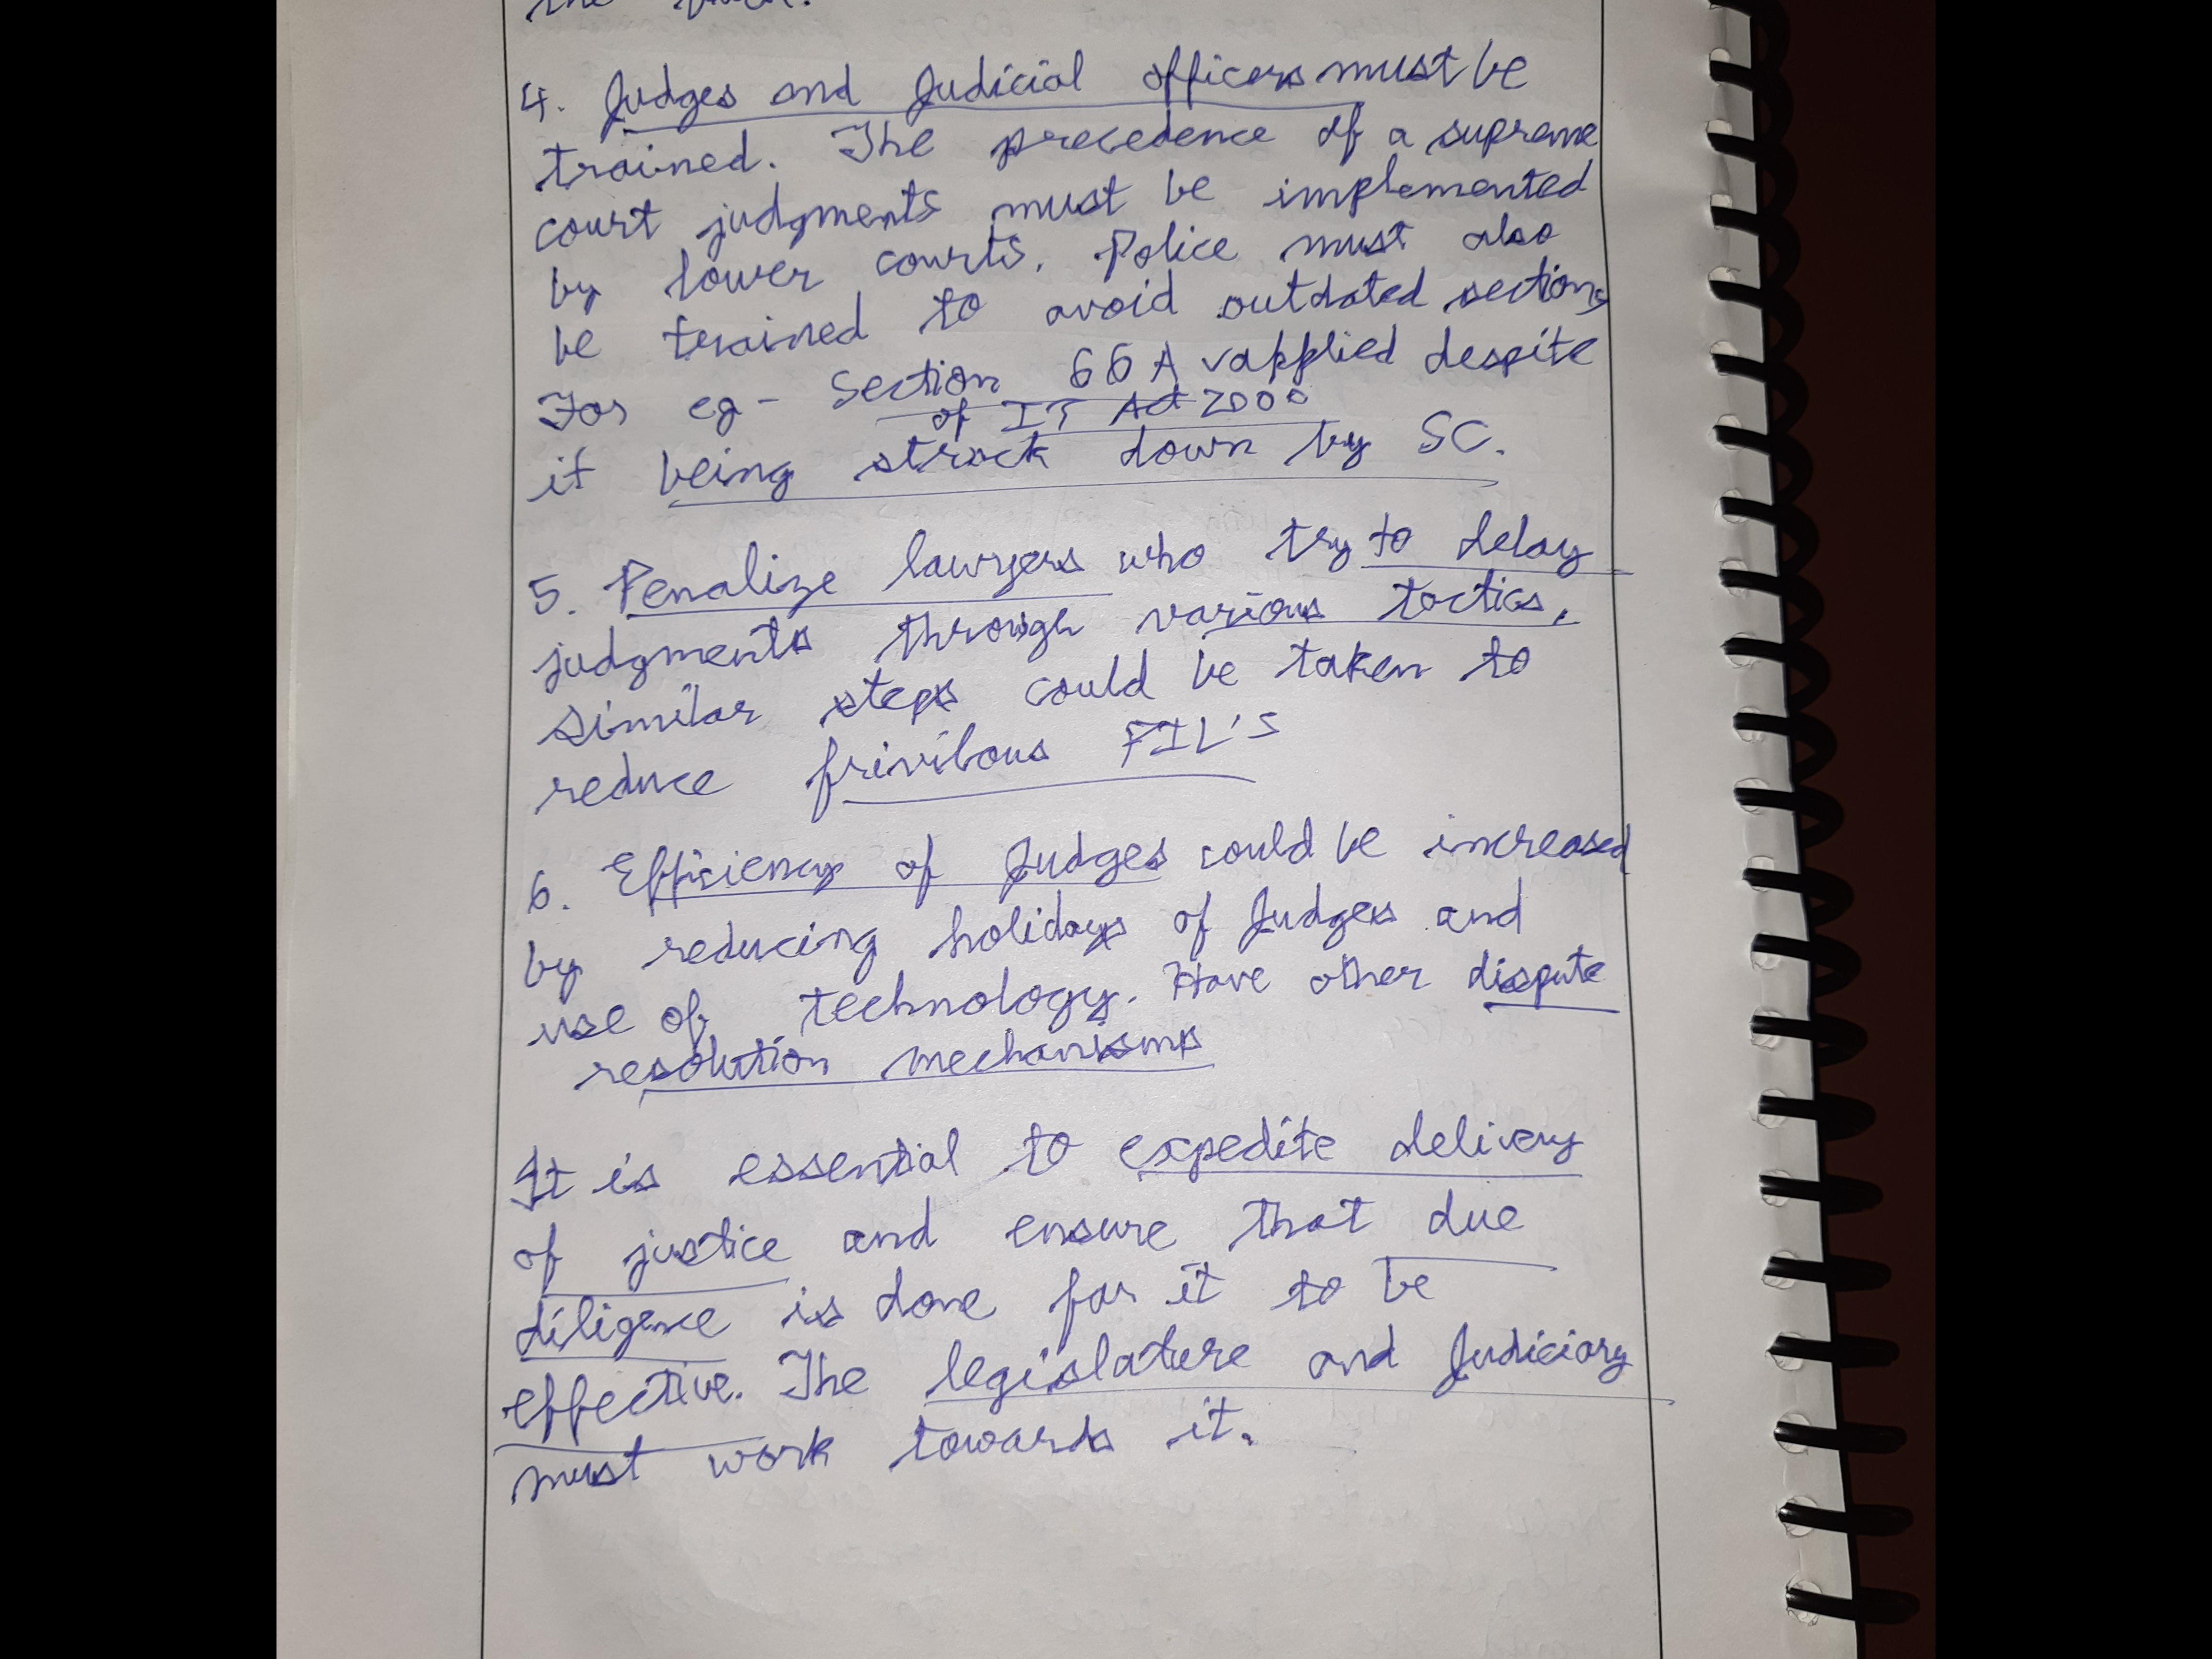 4. Judges and Judicial officers must be
trained. The precedence of a supreme
court judgments must be implemented
by lower courts. Police must also
be trained to avoid outdated sections
For eg - Section 66A applied despite
of IT Act 2000
it being struck down by SC.
5. Penalize lawyers who try to delay
judgments through various tactics.
Similar steps could be taken to
reduce frivilous PIL's
6. Efficiency of Judges could be increased
by reducing holidays of Judges and
use of technology. Have other dispute
resolution mechanisms
It is essential to expedite delivery
of justice and ensure that due
diligence is done for it to be
effective. The legislature and Judiciary
must work towards it.